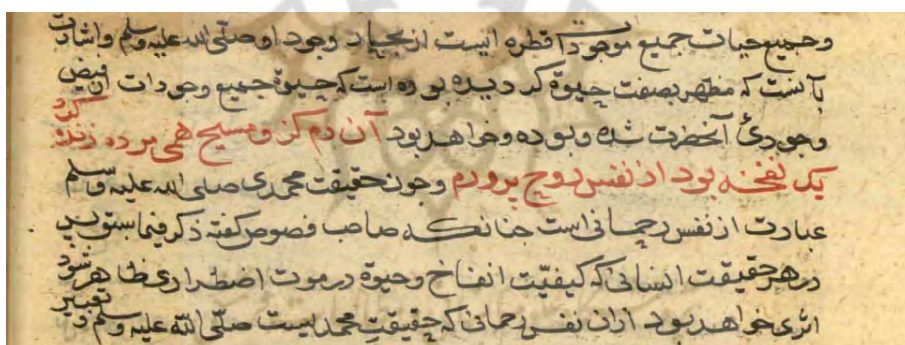 و جمیع حیات جمیع موجودات قطره ایست از بحیار وجود او صلّی الله علیه وسلم واشارت
بآنست که مظهر بصفت حیوة کردیده بوده است که حیوة جمیع وجودات از فیض
وجودئ آنحضرت شده وبوده وخواهد بود آن دم کز و مسیح همی مرده زنده کرد
یک نفخه بود از نفس روح پرورم وجون حقیقت محمدی صلی الله علیه وسلم
عبارت از نفس رحمانی است جنانکه صاحب فصوص کفته ذکر فیما سبق پس
در هر حقیقت انسانی که کیفیّت انفاخ وحیوة در موت اضطراری ظاهر شود
اثری خواهد بود ازان نفس رحمانی که حقیقت محمدیست صلّی الله علیه وسلم و تعبیر